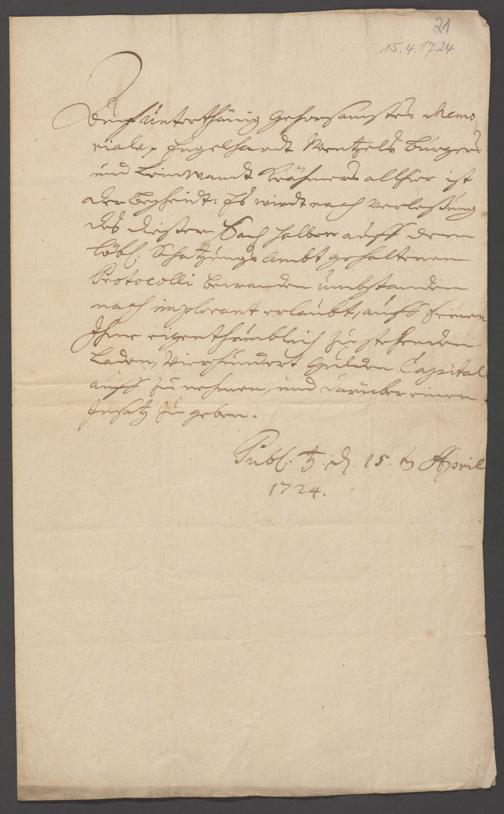 21
15.4.1724
Auff unterthänig gehorsamstes Memo
riale Engelhardt Wentzels Burgers
und Leinwandt Krähmers allhier ist
der Bescheidt: Es wirdt nach verlesung
des dieser Sach halber auff dem
löbl. Schatzungs Ambt gehaltenen
Protocolli bewanden umbständen
nach implorant erlaubt, auff seinen
Ihme eigenthümblich zu stehenden
Laden, Vierhundert Gulden Capital
auff zu nehmen, und darüber einen
Insatz zu geben.
Publ. ♄ d. 15. April
1724.